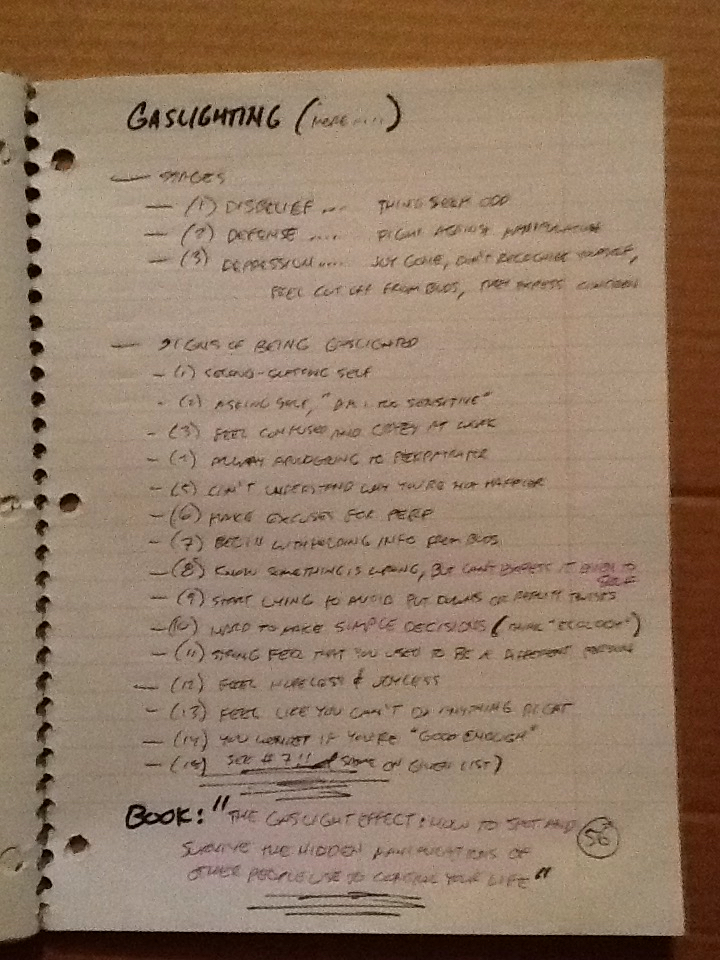 GASLIGHTING (MORE .....)
— STAGES
— (1) DISBELIEF .... THINGS SEEM ODD
— (2) DEFENSE ..... FIGHT AGAINST MANIPULATION
— (3) DEPRESSION .... JOY GONE, DON'T RECOGNIZE YOURSELF,
FEEL CUT OFF FROM BUDS, THEY EXPRESS CONCERN
— SIGNS OF BEING GASLIGHTED
— (1) SECOND-GUESSING SELF
- (2) ASKING SELF, "AM I TOO SENSITIVE"
- (3) FEEL CONFUSED AND CRAZY AT WORK
— (4) ALWAYS APOLOGIZING TO PERPETRATOR
— (5) CAN'T UNDERSTAND WHY YOU'RE NOT HAPPIER
— (6) MAKE EXCUSES FOR PERP
— (7) BEGIN WITHHOLDING INFO FROM BUDS
— (8) KNOW SOMETHING IS WRONG, BUT CAN'T EXPRESS IT EVEN TO
SELF
— (9) START LYING TO AVOID PUT DOWNS OR REALITY TWISTS
— (10) HARD TO MAKE SIMPLE DECISIONS (THINK "ECOLOGY")
— (11) STRONG FEEL THAT YOU USED TO BE A DIFFERENT PERSON
— (12) FEEL HOPELESS & JOYLESS
— (13) FEEL LIKE YOU CAN'T DO ANYTHING RIGHT
— (14) YOU WONDER IF YOU'RE "GOOD ENOUGH"
— (15) SEE # 7!! (SAME ON GIVEN LIST)
BOOK: "THE GASLIGHT EFFECT: HOW TO SPOT AND
SURVIVE THE HIDDEN MANIPULATIONS OF
OTHER PEOPLE USE TO CONTROL YOUR LIFE"
56